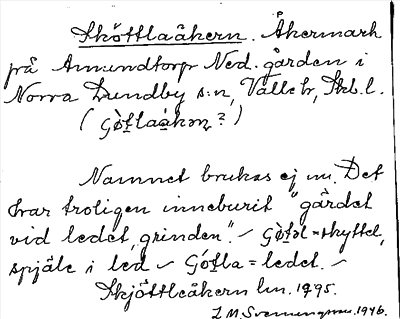 Sköttlaåkern. Åkermark
på Amundtorp Ned. gården i
Norra Lundby s:n, Valle hd, Skb. l.
(                ?)
Namnet brukas ej nu. Det
har troligen inneburit "gärdet
vid ledet, grinden". –        = skyttel,
spjäle i led –        = ledet. –
Skjöttleåkern lm. 1795.
L M. Svenungsson. 1946.